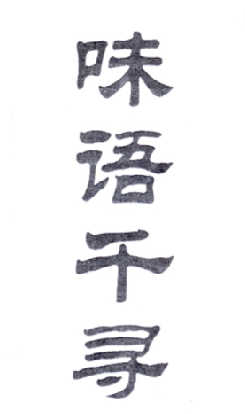 味语千寻